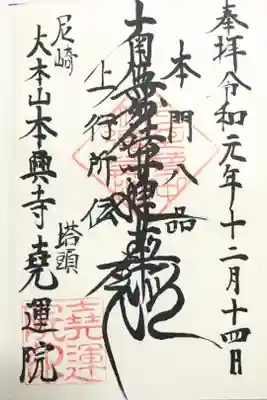 奉拝令和元年十二月十四日
本門八品
南無妙法蓮華経
上行所伝
尼崎 塔頭
大本山本興寺 堯運院
堯運院